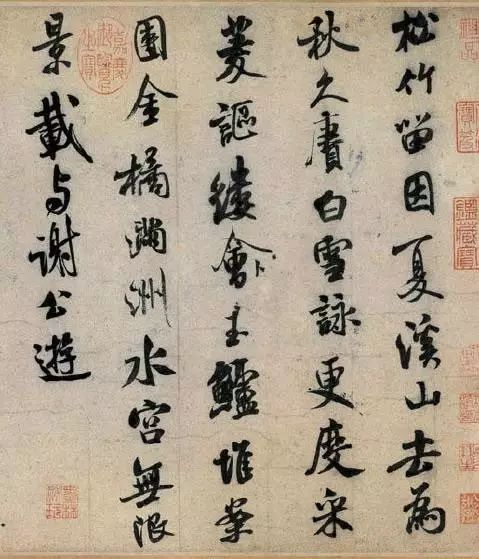 松竹留因夏溪山去為
秋久賡白雪詠更度采
菱謳縷會玉鱸堆案
團金橘滿洲水宮無限
景載与謝公遊
嘉慶御覽之寶